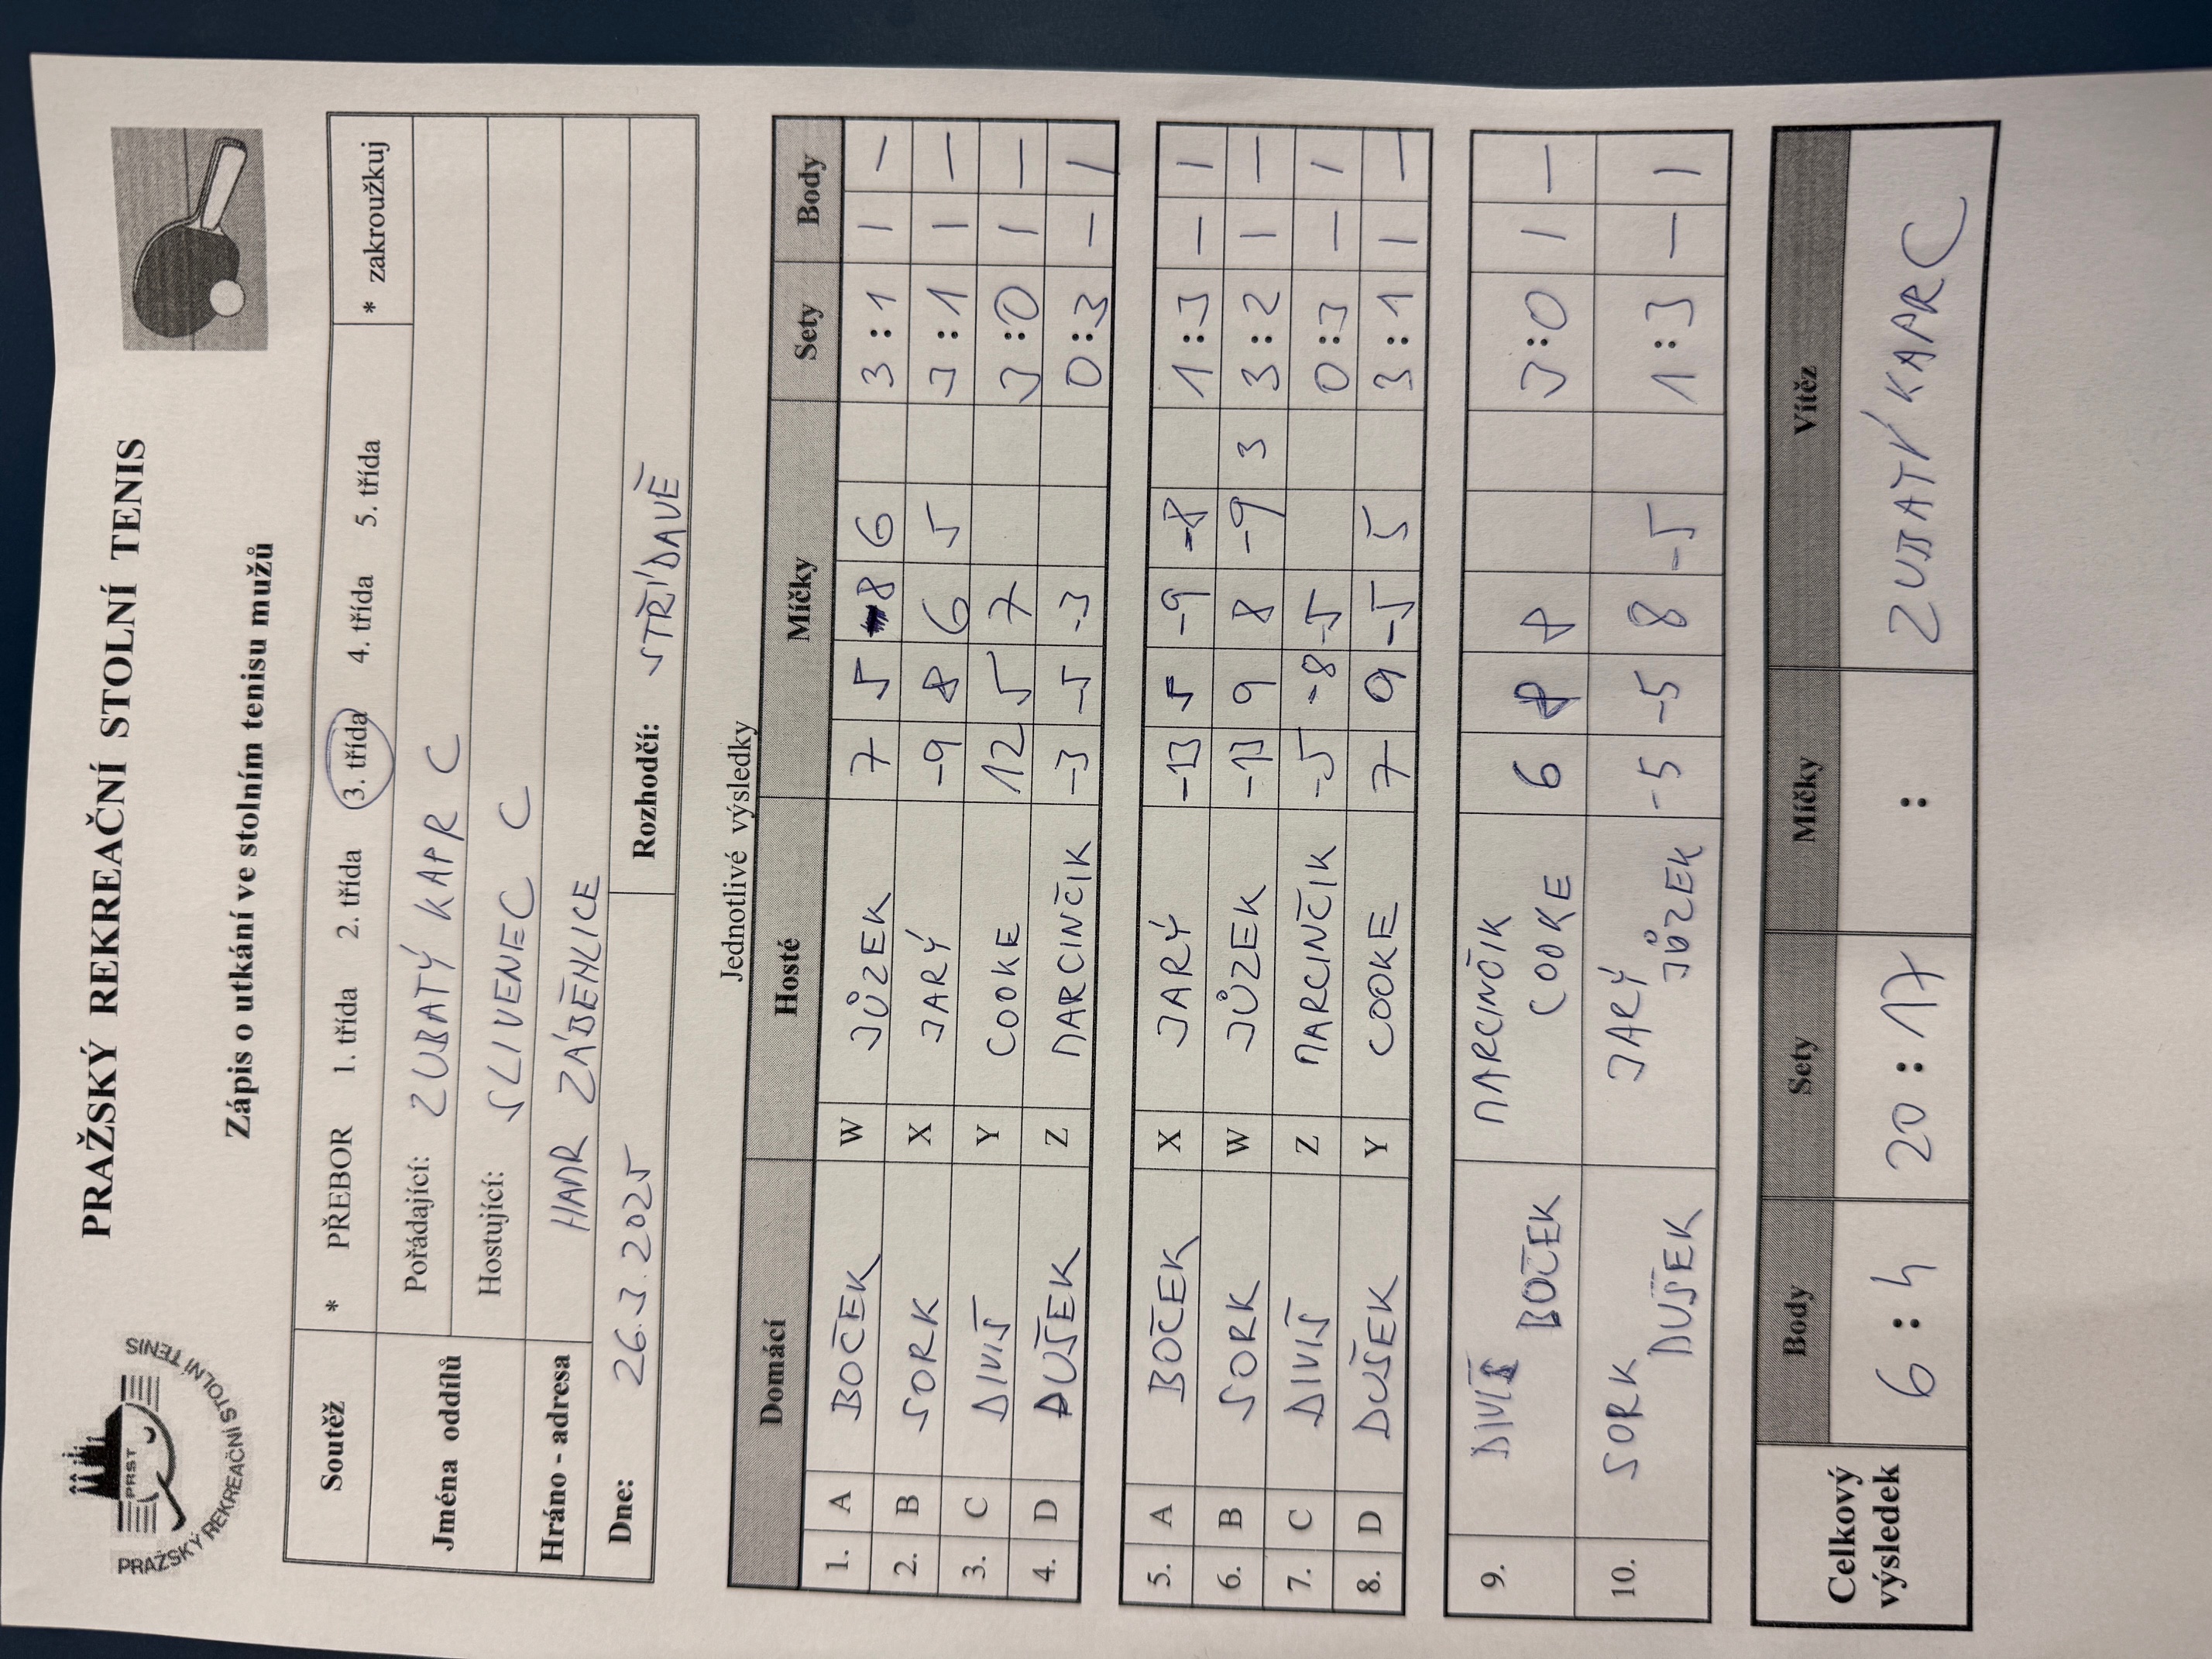 PRAŽSKÝ REKREAČNÍ STOLNÍ TENIS
PRST
PRAŽSKÝ REKREAČNÍ STOLNÍ TENIS
Zápis o utkání ve stolním tenisu mužů
Soutěž * PŘEBOR 1. třída 2. třída 3. třída 4. třída 5. třída * zakroužkuj
Jména oddílů Pořádající: ZUBATÝ KAPR C
Hostující: SLIVENEC C
Hráno - adresa HAMR ZÁBĚHLICE
Dne: 26.3.2025 Rozhodčí: STŘÍDAVĚ
Jednotlivé výsledky
Domácí Hosté Míčky Sety Body
1. A BOČEK W JŮZEK 7 5 -8 6 3 : 1 1 —
2. B SORK X JARÝ -9 8 6 5 3 : 1 1 —
3. C DIVIŠ Y COOKE 12 5 7 3 : 0 1 —
4. D DUŠEK Z MARCINČIK -3 -5 -3 0 : 3 — 1
5. A BOČEK X JARÝ -13 5 -9 -8 1 : 3 — 1
6. B SORK W JŮZEK -13 9 8 -9 3 3 : 2 1 —
7. C DIVIŠ Z MARCINČIK -5 -8 -5 0 : 3 — 1
8. D DUŠEK Y COOKE 7 9 -5 5 3 : 1 1 —
9. DIVIŠ BOČEK MARCINČIK COOKE 6 8 8 3 : 0 1 —
10. SORK DUŠEK JARÝ JŮZEK -5 -5 8 -5 1 : 3 — 1
Celkový výsledek Body Sety Míčky Vítěz
6 : 4 20 : 17 : ZUBATÝ KAPR C